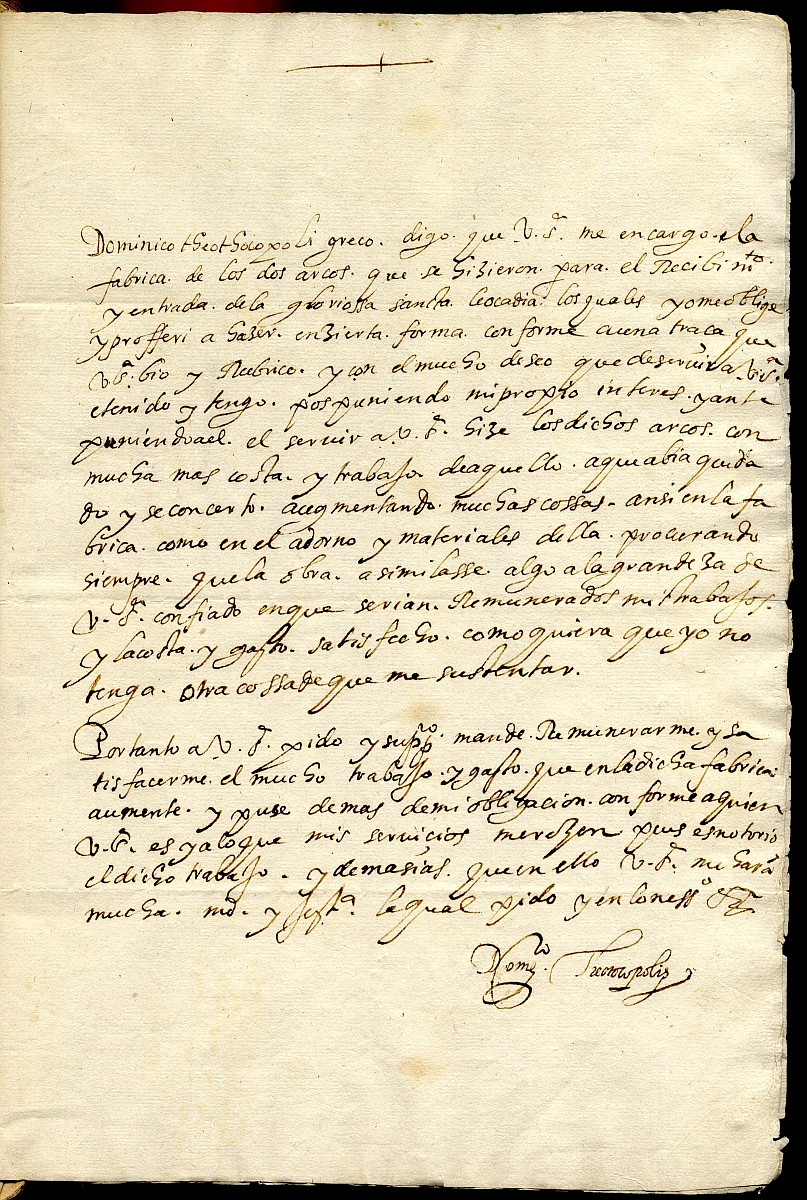 Dominico theothocopoli greco. digo. que V.Sª. me encargo. la
fabrica. de los dos arcos. que se hizieron. para. el Recibimto.
y entrada. dela gloriossa sancta. leocadia. los quales yo me oblige
y profferi a hazer. en zierta. forma. conforme a una traca que
V.Sª. bio y Rubrico. y con el mucho deseo que de servir a V.Sª.
e tenido y tengo. pospuniendo mi propio interes. y ante
puniendo a el. el servir a V.Sª. hize los dichos arcos. con
mucha mas costa. y trabajo. de aquello. a que abia queda
do y se concerto. augmentando. muchas cossas. ansi en la fa
brica. como en el adorno y materiales della. procurando
siempre. que la obra. asimilasse. algo a la grandeza de
V.Sª. confiado en que serian. Remunerados mis trabajos.
y la costa. y gasto. satisfecho. como quiera que yo no
tenga. otra cossa de que me sustentar.
Por tanto a V.Sª. pido y suppco. mande. Remunerarme. y sa
tisfacerme. el mucho trabajo. y gasto. que en la dicha fabrica.
aumente. y puse demas de mi obligacion. conforme a quien
V.Sª. es y a lo que mis servicios merezen pues es notorio
el dicho trabajo. y demasias. que en ello V.Sª. me hara
mucha. md. y justª. la qual pido y en lo nessº
Domco. Theotocopoli